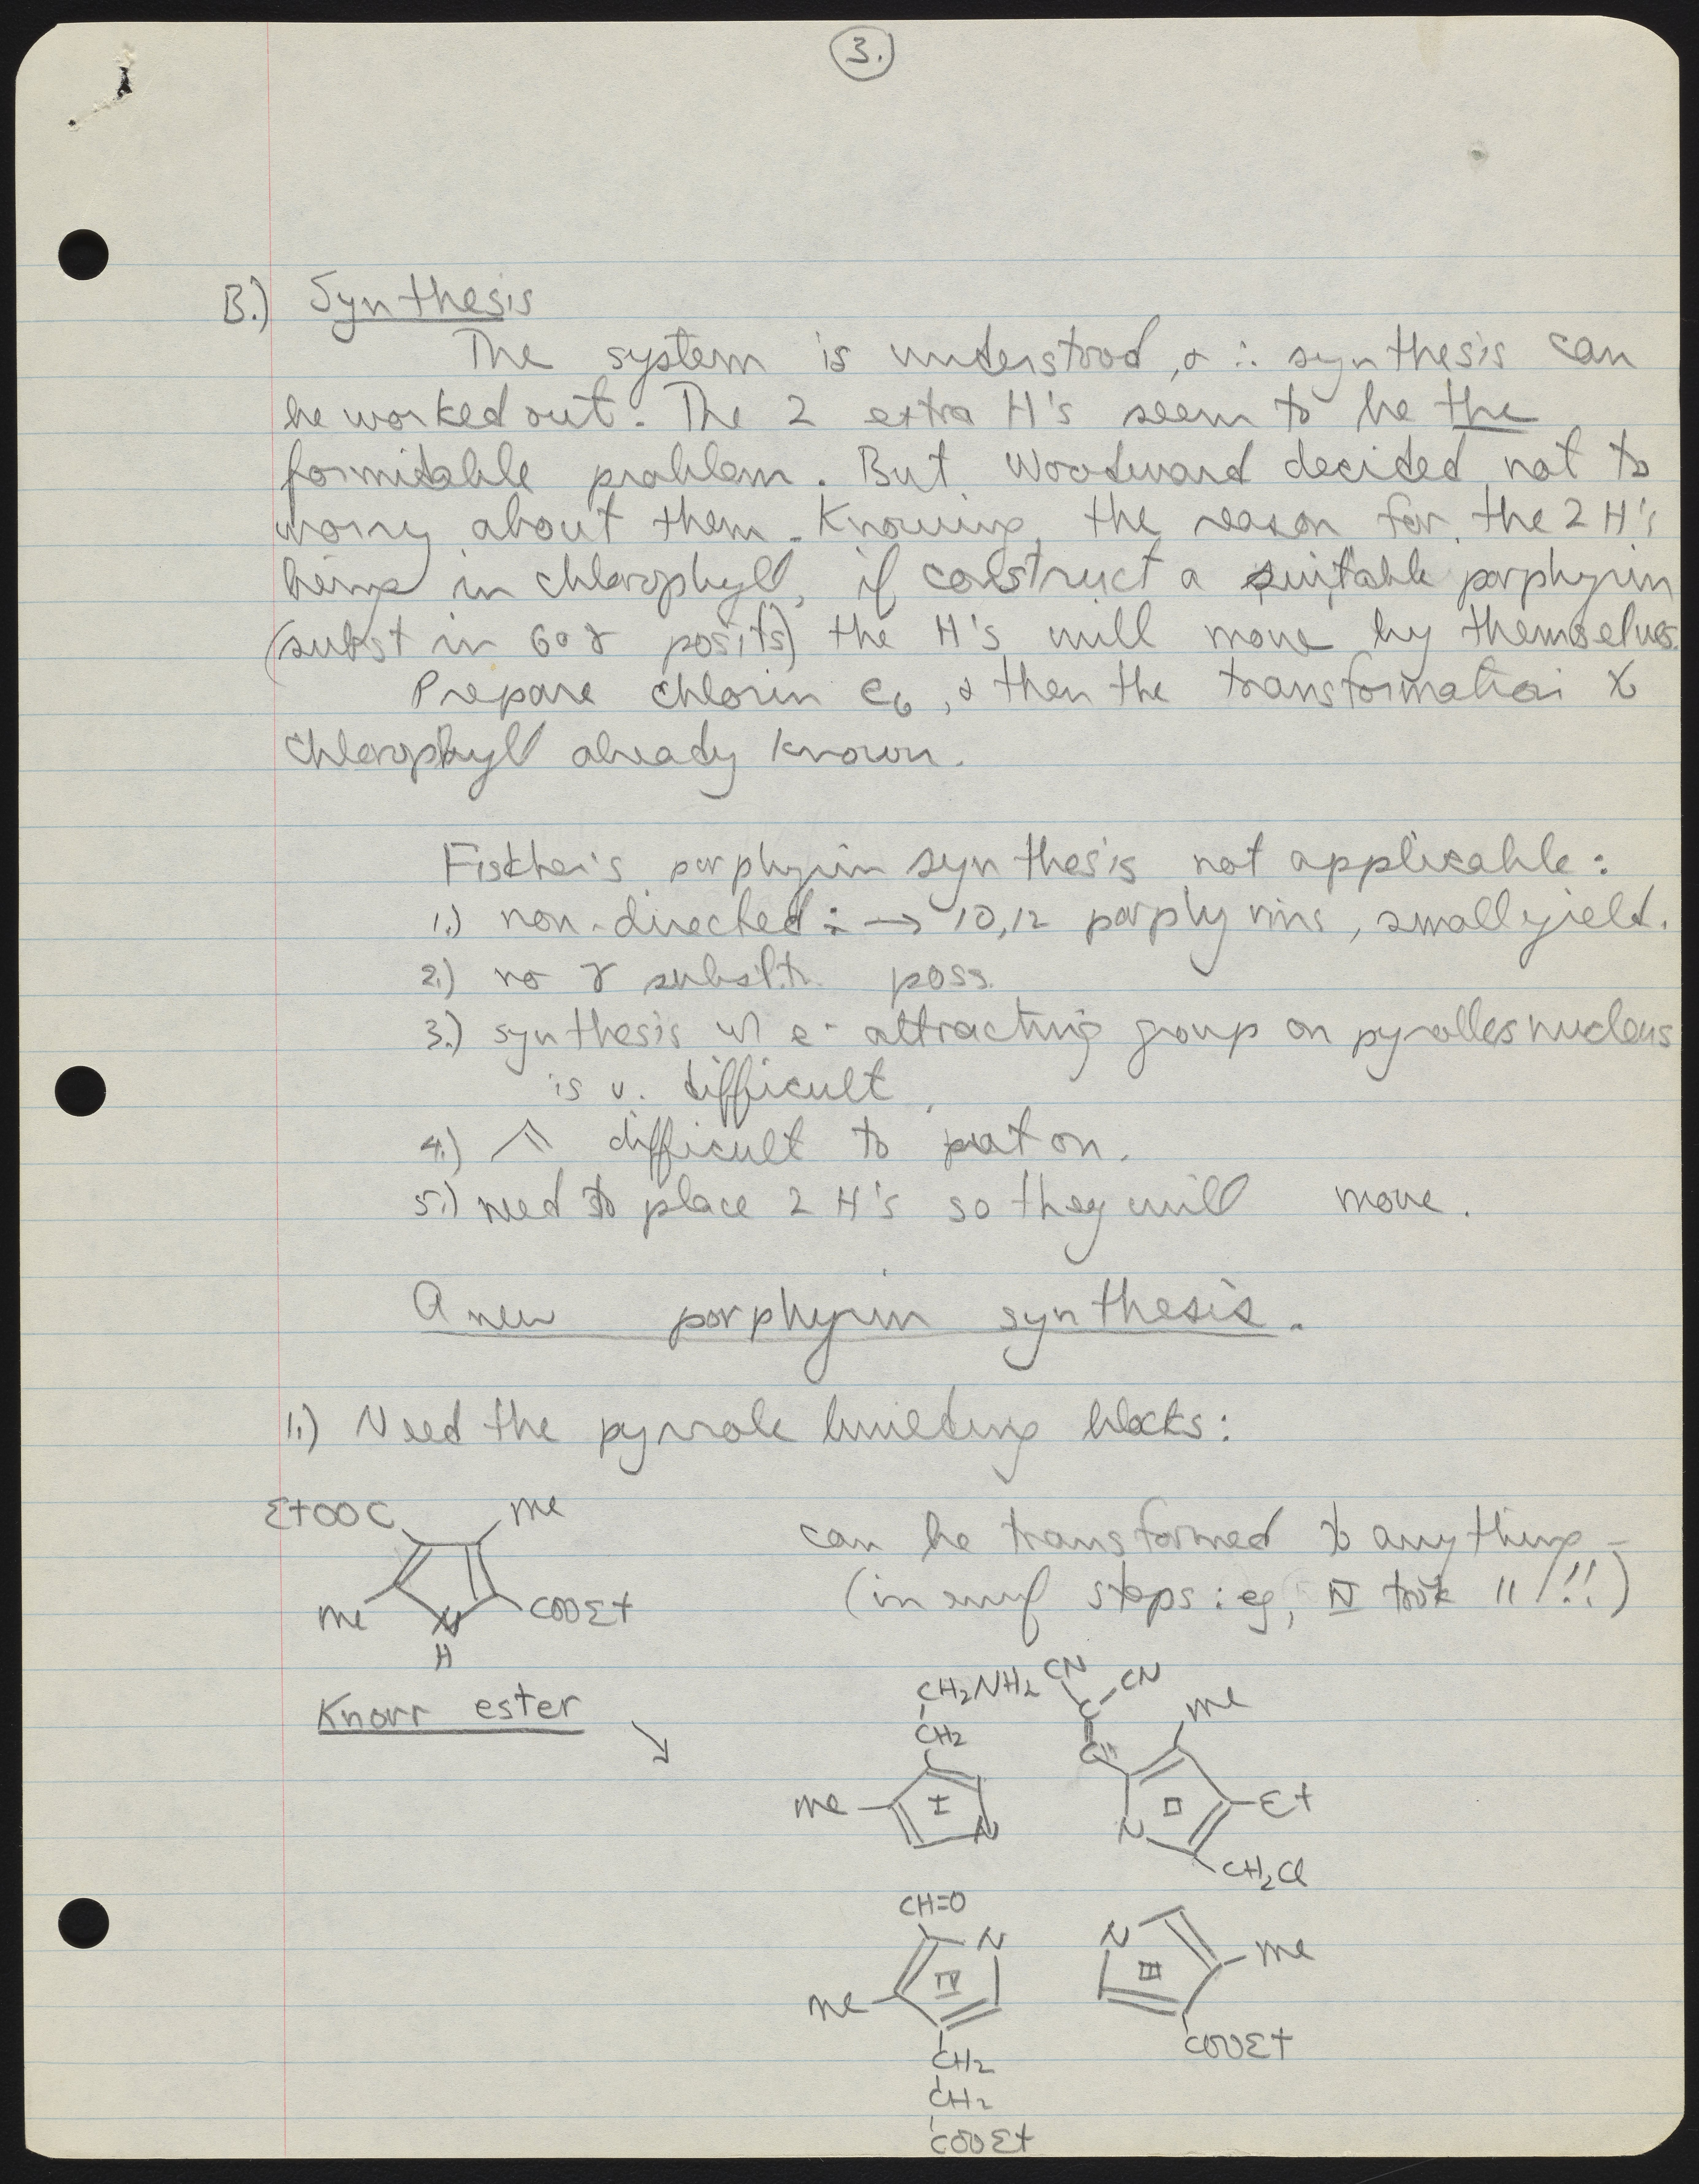 3.
B.) Synthesis
The system is understood, & ∴ synthesis can
be worked out. The 2 extra H's seem to be the
formidable problem. But Woodward decided not to
worry about them. Knowing the reason for the 2 H's
being in chlorophyll, if construct a suitable porphyrin
(subst in 6 & γ posits) the H's will move by themselves.
Prepare chlorin e6, & then the transformation to
chlorophyll already known.
Fischer's porphyrin synthesis not applicable:
1.) non-directed ∴ → 10,12 porphyrins, small yield.
2.) no γ substit. poss.
3.) synthesis w/ e- attracting group on pyrolles nucleus
is v. difficult.
4.) difficult to put on.
5.) need to place 2 H's so they will move.
A new porphyrin synthesis.
1.) Need the pyrrole building blocks:
EtOOC Me
can be transformed to anything -
Me N COOEt
(in enuf steps: eg, IV took 11!!!)
H
Knorr ester
CH2NH2 CN CN
CH2 C Me
C
Me I N
N II Et
CH2Cl
CH=O
N N
IV III Me
Me
COOEt
CH2
CH2
COOEt